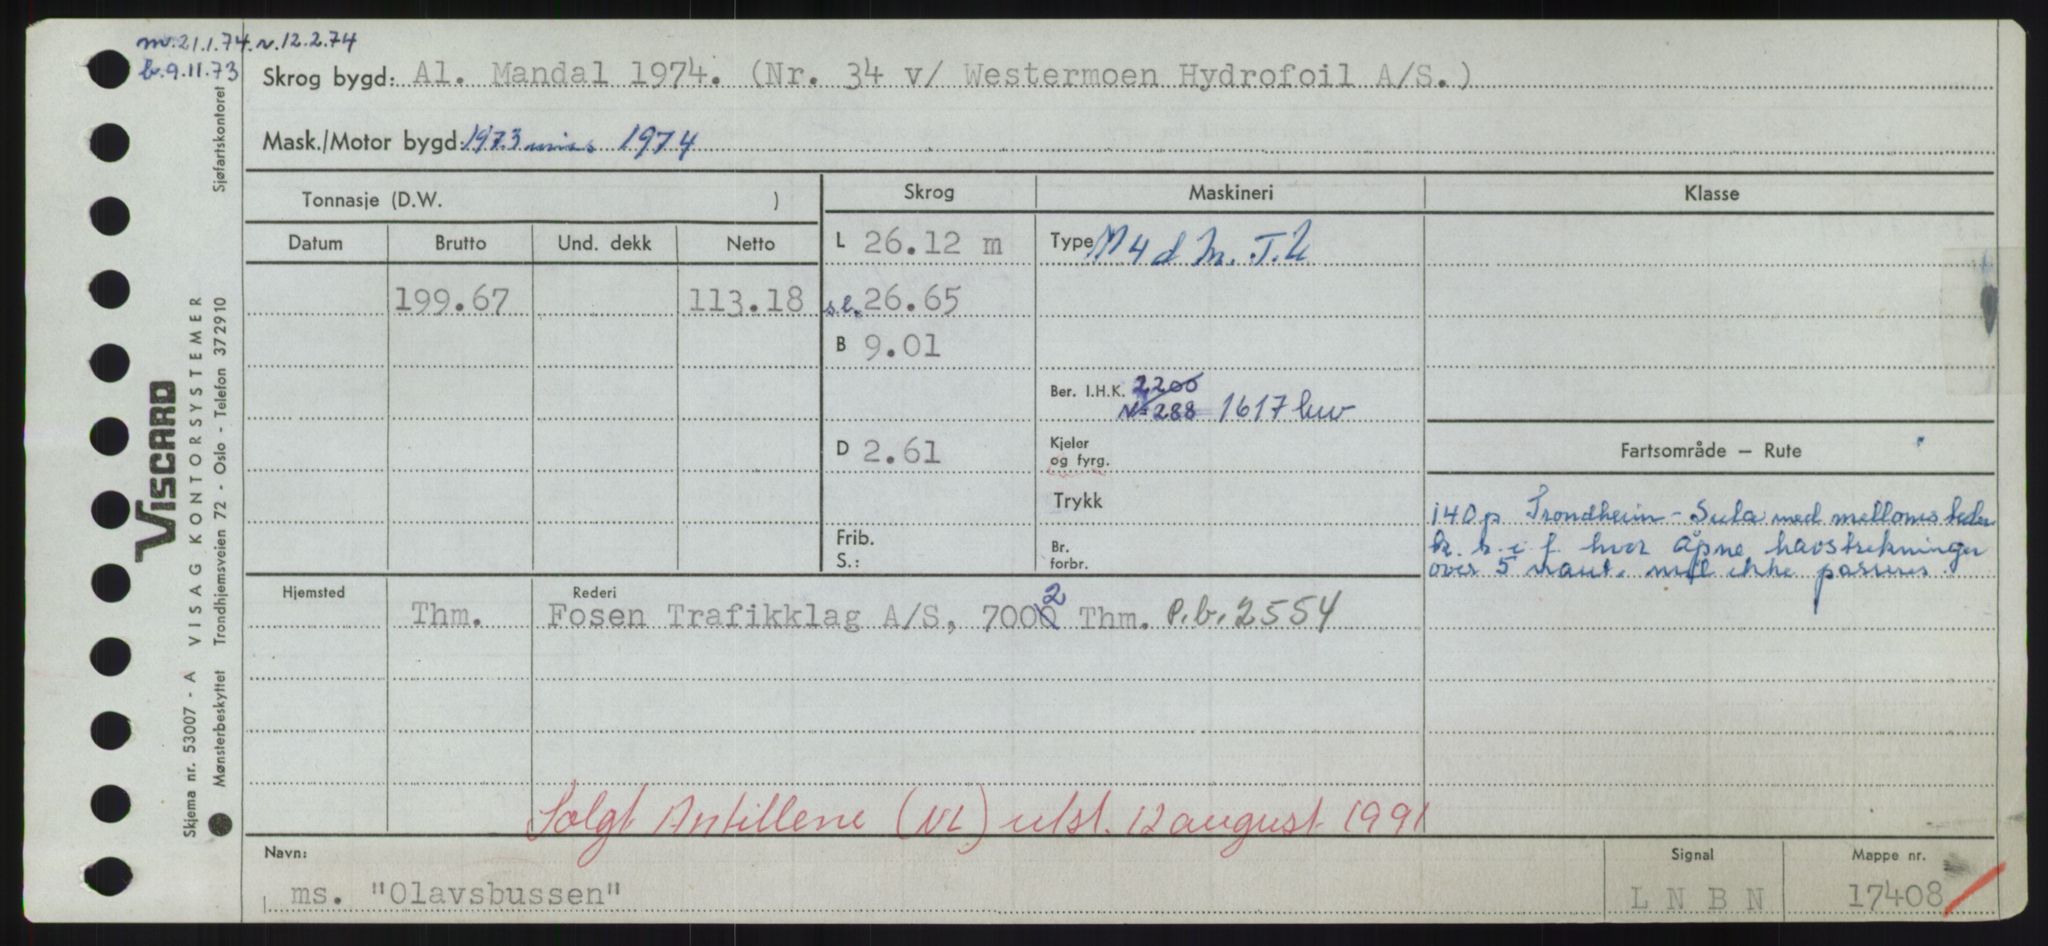 m. 21.1.74. n. 12.2.74
b. 9.11.73
Skrog bygd: Al. Mandal 1974. (Nr. 34 v/ Westermoen Hydrofoil A/S.)
Mask./Motor bygd: 1973 1974
Tonnasje (D.W. )
Skrog
Maskineri
Klasse
Datum Brutto Und. dekk Netto
L 26.12 m
Type
199.67 113.18
s.l. 26.65
B 9.01
Ber. I.H.K. 2200
N=288 1617 kw
D 2.61
Kjeler
og fyrg.
Trykk
Frib.
S.:
Br.
forbr.
Fartsområde — Rute
140 p Trondheim - Sula med mellomsteder
hvor åpne havstrekninger
over 5 naut. mil ikke passeres
Hjemsted Rederi
Thm. Fosen Trafikklag A/S, 7000 2 Thm. P.b. 2554
Solgt Antillene (NL) utst. 12 august 1991
Navn:
ms. "Olavsbussen"
Signal
L N B N
Mappe nr.
17408
VISCARD
VISAG KONTORSYSTEMER
Skjema nr. 53007 - A
Mønsterbeskyttet Trondhjemsveien 72 - Oslo - Telefon 372910
Sjøfartskontoret